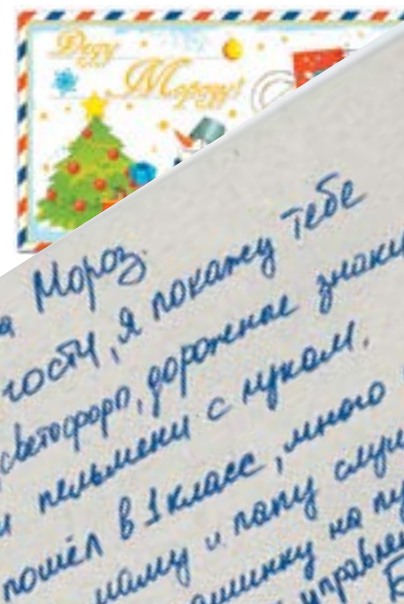 Деду
Морозу!
Мороз.
гости, я покажу тебе
светофоры, дорожные знаки
пельмени с луком.
пошёл в 1 класс, много
маму и папу
на